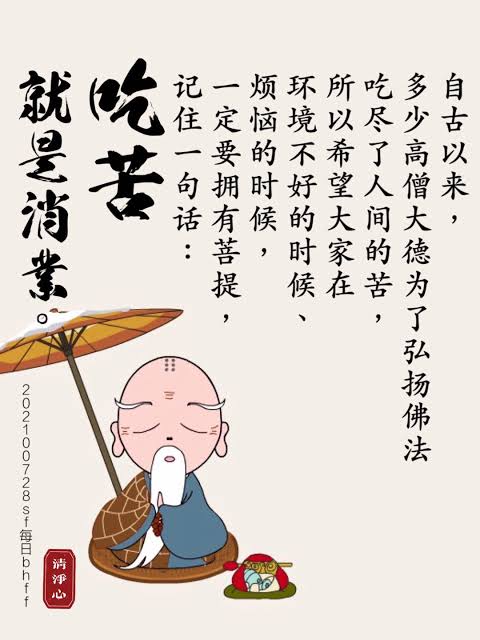 自古以来，
多少高僧大德为了弘扬佛法
吃尽了人间的苦，
所以希望大家在
环境不好的时候、
烦恼的时候，
一定要拥有菩提，
记住一句话：
吃苦
就是消業。
202100728sf每日bhff
清淨心